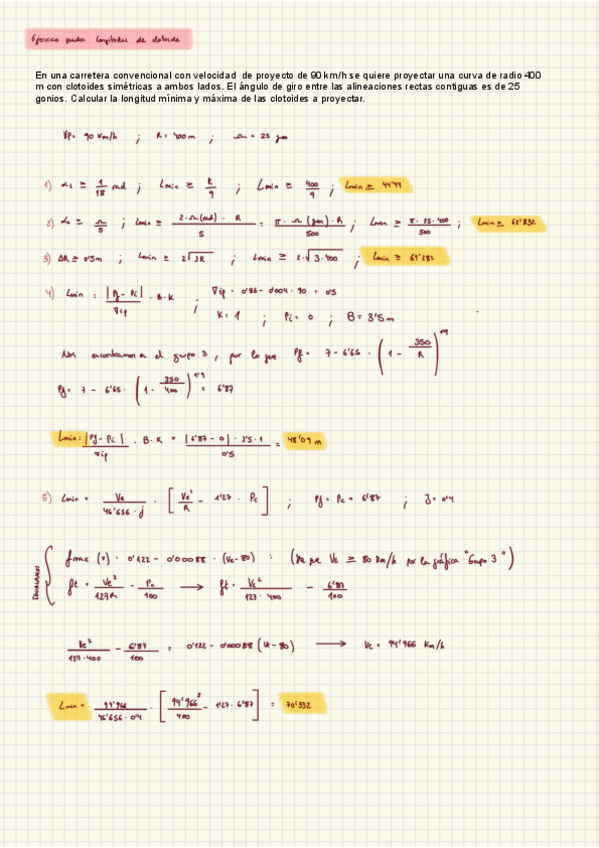 Ejercicio puntos longitudes de clotoide
En una carretera convencional con velocidad de proyecto de 90 km/h se quiere proyectar una curva de radio 400
m con clotoides simétricas a ambos lados. El ángulo de giro entre las alineaciones rectas contiguas es de 25
gonios. Calcular la longitud mínima y máxima de las clotoides a proyectar.
Vp = 90 Km/h ; R = 400 m ; Ω = 25 gon
1) αL ≥ 1/18 rad ; Lmin ≥ R/9 ; Lmin ≥ 400/9 ; Lmin ≥ 44'44
2) αL ≥ Ω/5 ; Lmin ≥ 2·Ω(rad)·R/5 = π·Ω(gon)·R/500 ; Lmin ≥ π·25·400/500 ; Lmin ≥ 62'832
3) ΔR ≥ 0'5m ; Lmin ≥ 2√3R ; Lmin ≥ 2·√3·400 ; Lmin ≥ 69'282
4) Lmin = |Pf - Pi|/∇ip · B·K ; ∇ip = 0'86 - 0'004·90 = 0'5
K = 1 ; Pi = 0 ; B = 3'5 m
Nos encontramos en el grupo 3, por lo que Pf = 7 - 6'65 · (1 - 350/R)^1'9
Pf = 7 - 6'65 · (1 - 350/400)^1'9 = 6'87
Lmin = |Pf - Pi|/∇ip · B·K = |6'87 - 0|·3'5·1/0'5 = 48'09 m
5) Lmin = Ve/46'656·J · [Ve²/R - 1'27·Pc] ; Pf = Pc = 6'87 ; J = 0'4
IGUALAMOS
fmax (v) = 0'122 - 0'00088 · (Ve-80) = (ya que Ve ≥ 80 km/h por la gráfica "Grupo 3")
ft = Ve²/127R - Pc/100 → ft = Ve²/127·400 - 6'87/100
Ve²/127·400 - 6'87/100 = 0'122 - 0'00088 (Ve-80) → Ve = 94'966 Km/h
Lmin = 94'966/46'656·0'4 · [94'966²/400 - 1'27·6'87] = 70'332